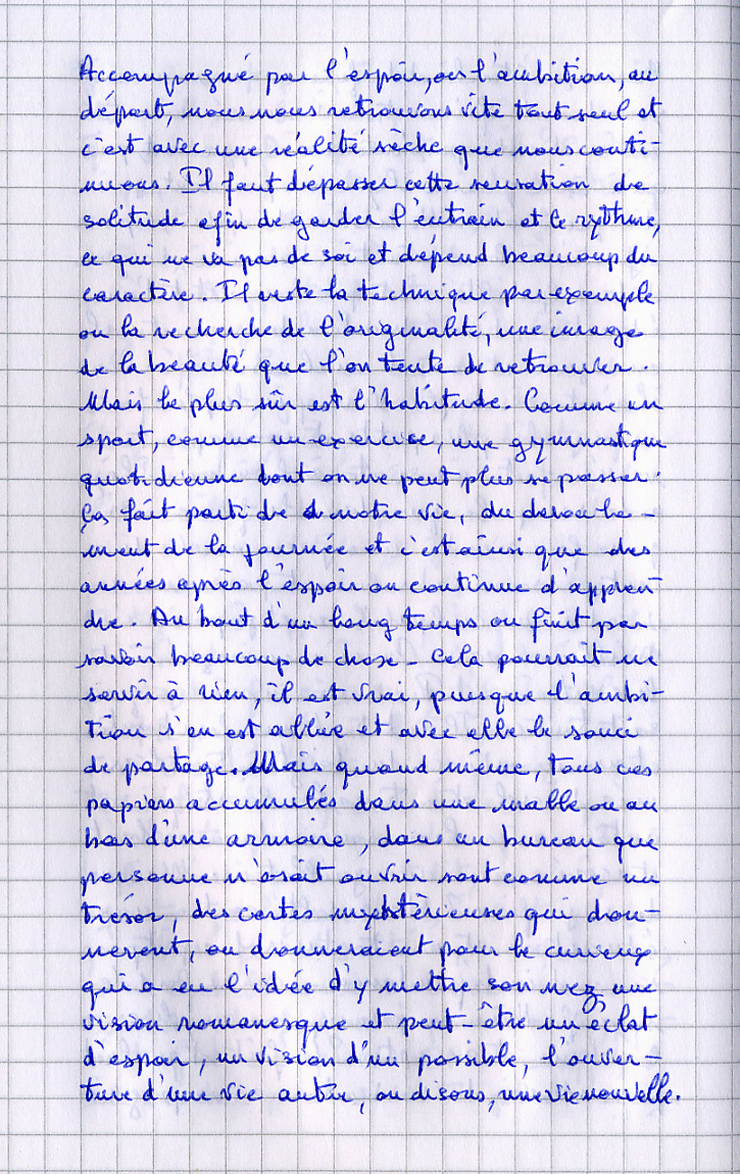 Accompagné par l'espoir, ou l'ambition, au
départ, nous nous retrouvons vite tout seul et
c'est avec une réalité sèche que nous conti-
nuons. Il faut dépasser cette sensation de
solitude afin de garder l'entrain et le rythme,
ce qui ne va pas de soi et dépend beaucoup du
caractère. Il reste la technique par exemple
ou la recherche de l'originalité, une image
de la beauté que l'on tente de retrouver.
Mais le plus sûr est l'habitude. Comme un
sport, comme un exercice, une gymnastique
quotidienne dont on ne peut plus se passer.
Ça fait partie de notre vie, du déroule-
ment de la journée et c'est ainsi que des
années après l'espoir on continue d'appren
dre. Au bout d'un long temps on finit par
savoir beaucoup de chose - Cela pourrait ne
servir à rien, il est vrai, puisque l'ambi-
tion s'en est allée et avec elle le souci
de partage. Mais quand même, tous ces
papiers accumulés dans une malle ou au
bas d'une armoire, dans un bureau que
personne n'osait ouvrir sont comme un
trésor, des cartes mystérieuses qui don-
nerent, ou donneraient pour le curieux
qui a eu l'idée d'y mettre son nez, une
vision romanesque et peut-être un éclat
d'espoir, un vision d'un possible, l'ouver-
ture d'une vie autre, ou disons, une vie nouvelle.